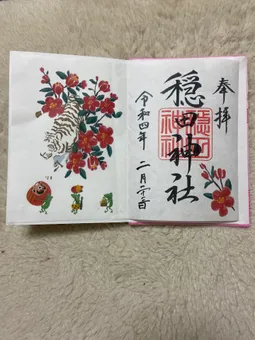 奉拝
穏田神社
穏田
神社
令和四年 二月